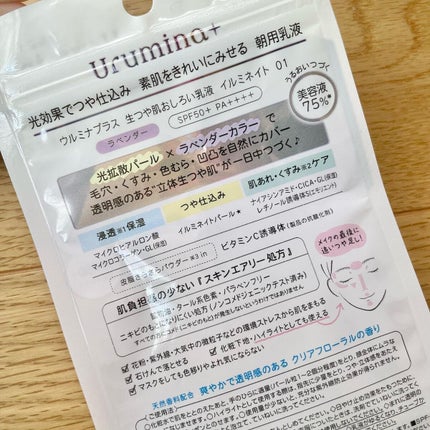 urumina+
光効果でつや仕込み 素肌をきれいにみせる 朝用乳液
ウルミナプラス 生つや肌おしろい乳液 イルミネイト 01
うるおいつづく
美容液
75%
ラベンダー
SPF50+ PA++++
光拡散パール × ラベンダーカラー で
毛穴・くすみ・色むら・凹凸を自然にカバー
透明感のある"立体生つや肌"が一日中つづく♪
浸透※1保湿
つや仕込み
肌あれ・くすみ※2ケア
マイクロヒアルロン酸
マイクロコラーゲン・GL(保湿)
イルミネイトパール★
ナイアシンアミド・CICA・GL(保湿)
レチノール誘導体S(エモリエント)
皮脂さっさらパウダー※3 in
ビタミンC誘導体(製品の抗酸化剤)
肌負担の少ない『スキンエアリー処方』
タール系色素・パラベンフリー
ニキビのもとになりにくい処方(ノンコメドジェニックテスト済み)
すべての方にコメド(ニキビのもと)が発生しないというわけではありません
花粉・紫外線・大気中の微粒子などの環境ストレスから肌をまもる
石けんで落とせる
化粧下地・ハイライトとしても使える
マスクをしても色移りやよれ気にならない
メイクの最後に
追いつや足し!
天然香料配合 爽やかで透明感のある クリアフローラルの香り